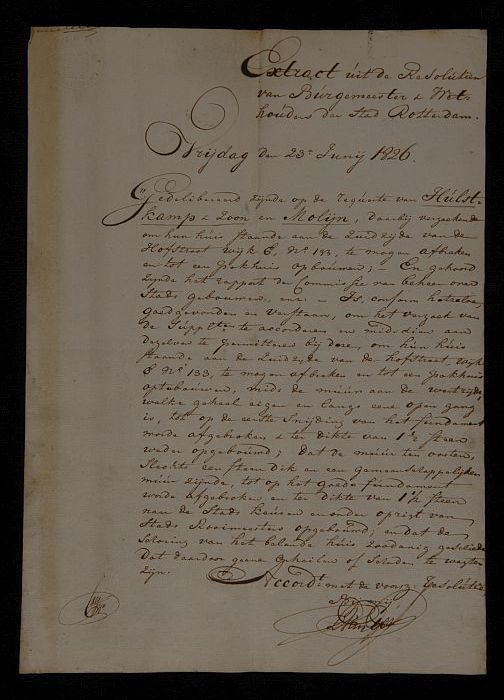 Extract uit de Resolutien
van Burgemeester & Wet-
houders der Stad Rotterdam.
Vrijdag den 23e Junij 1826.
Gedelibereerd zijnde op de requeste van Hulst-
kamp & Zoon en Molijn, daarbij verzoekende
om hun huis staande aan de Zuidzijde van de
Hofstraat wijk C, No 133, te mogen afbreken
en tot een Pakhuis opbouwen; – En gehoord
zijnde het rapport der Commissie van beheer over
Stads gebouwen, enz. – Is, conform hetzelve,
goedgevonden en verstaan, om het verzoek van
de Supplten te accorderen en mids dien aan
dezelve te permitteren bij deze, om hun huis
staande aan de Zuidzijde van de hofstraat wijk
C No 133, te mogen afbreken en tot een pakhuis
optebouwen, mids de muur aan de westzijde,
welke geheel eigen en langs eene open gang
is, tot op de eerste Snijding van het fundament
worde afgebroken & ter dikte van 1½ steen
weder opgebouwd; dat de muur ten oosten,
Slechts een steen dik en een gemeenschappelijken
muur zijnde, tot op het goede fundament
worde afgebroken en ter dikte van 1½ steen
naa de Stads keuren en onder opzigt van
Stads Rooimeesters opgebouwd; en dat de
van het belende huis zoodanig geschiede
Dat daardoor geene onheilen of Schaden te wagten
zijn.
Accordt met de voorsz: Resolutie